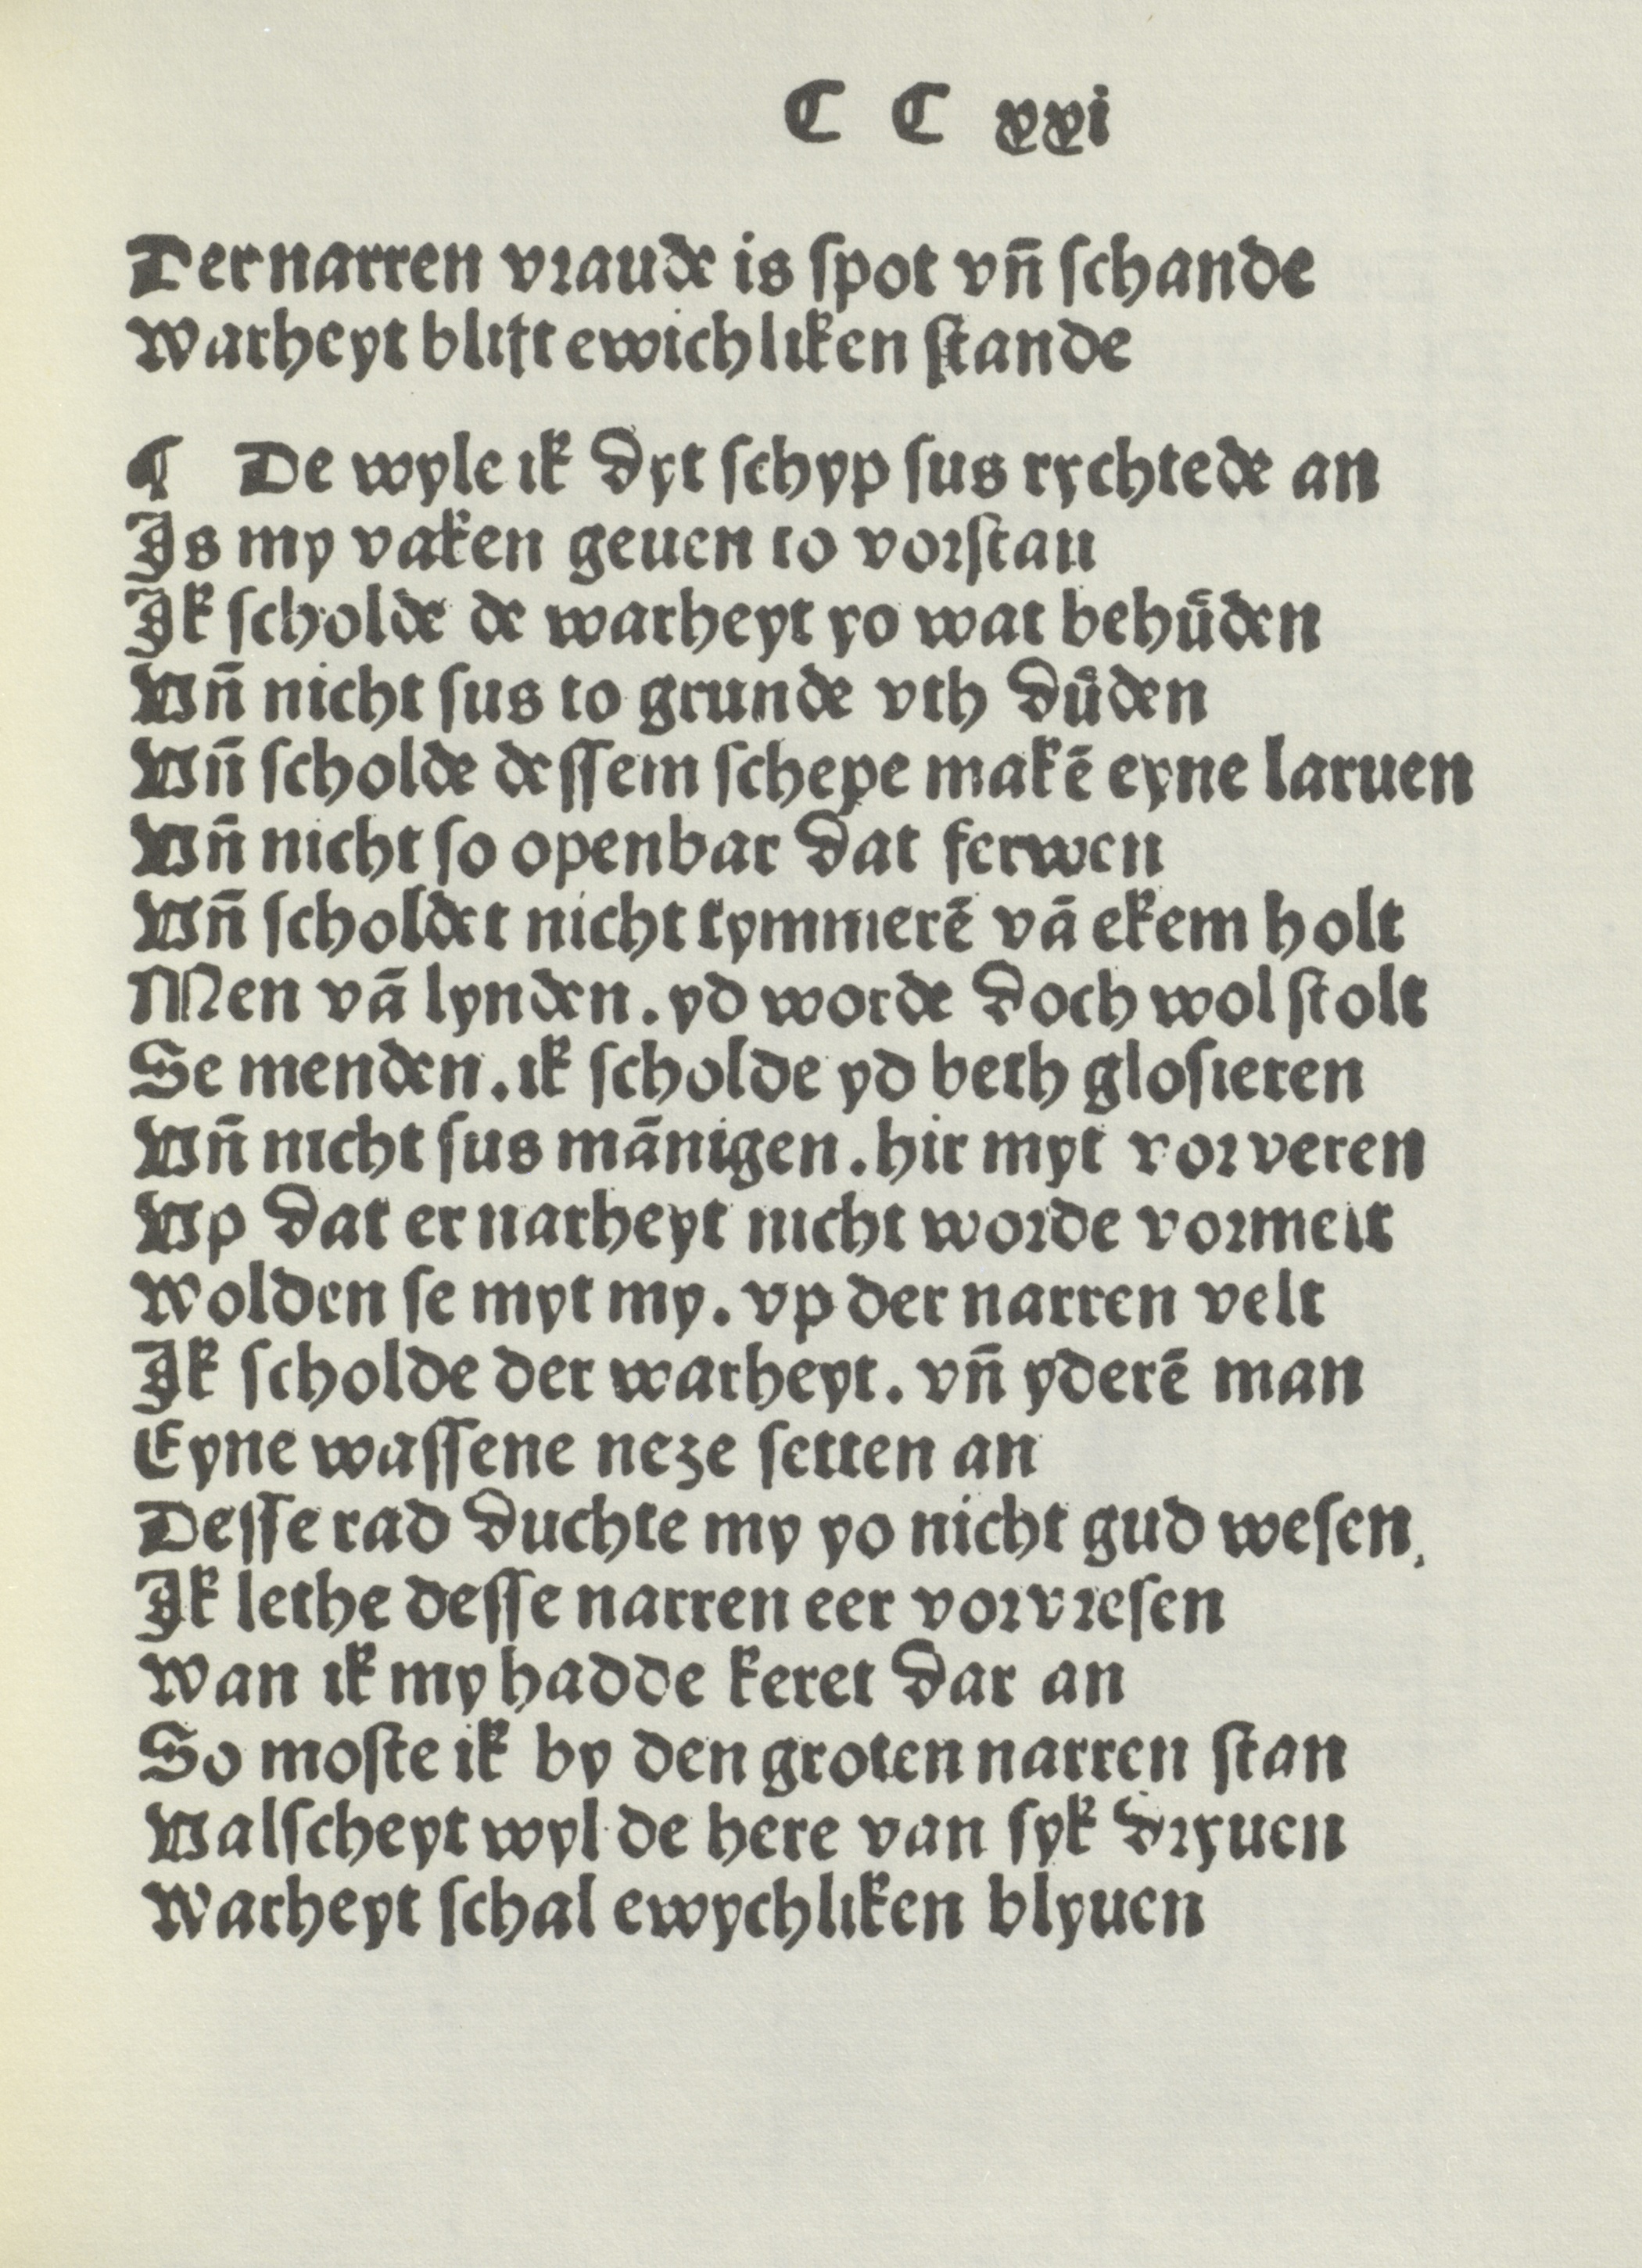 C C xxi
Der narren vraude is ſpot vn̄ ſchande
Warheyt blift ewichliken ſtande
¶ De wyle ik dyt ſchyp ſus rychtede an
Is my vaken geuen to vorſtan
Ik ſcholde de warheyt yo wat behuͤden
Vn̄ nicht ſus to grunde vth duͤden
Vn̄ ſcholde deſſem ſchepe makē eyne laruen
Vn̄ nicht ſo openbar dat ferwen
Vn̄ ſcholdet nicht tymmerē vā ekem holt
Men vā lynden. yd worde doch wol ſtolt
Se menden. ik ſcholde yd beth gloſieren
Vn̄ nicht ſus mānigen. hir myt vorveren
Vp dat er narheyt nicht worde vormelt
Wolden ſe myt my. vp der narren velt
Ik ſcholde der warheyt. vn̄ yderē man
Eyne waſſene neze ſetten an
Deſſe rad duchte my yo nicht gud weſen.
Ik lethe deſſe narren eer vorvreſen
Wan ik my hadde keret dar an
So moſte ik by den groten narren ſtan
Valſcheyt wyl de here van ſyk dryuen
Warheyt ſchal ewychliken blyuen